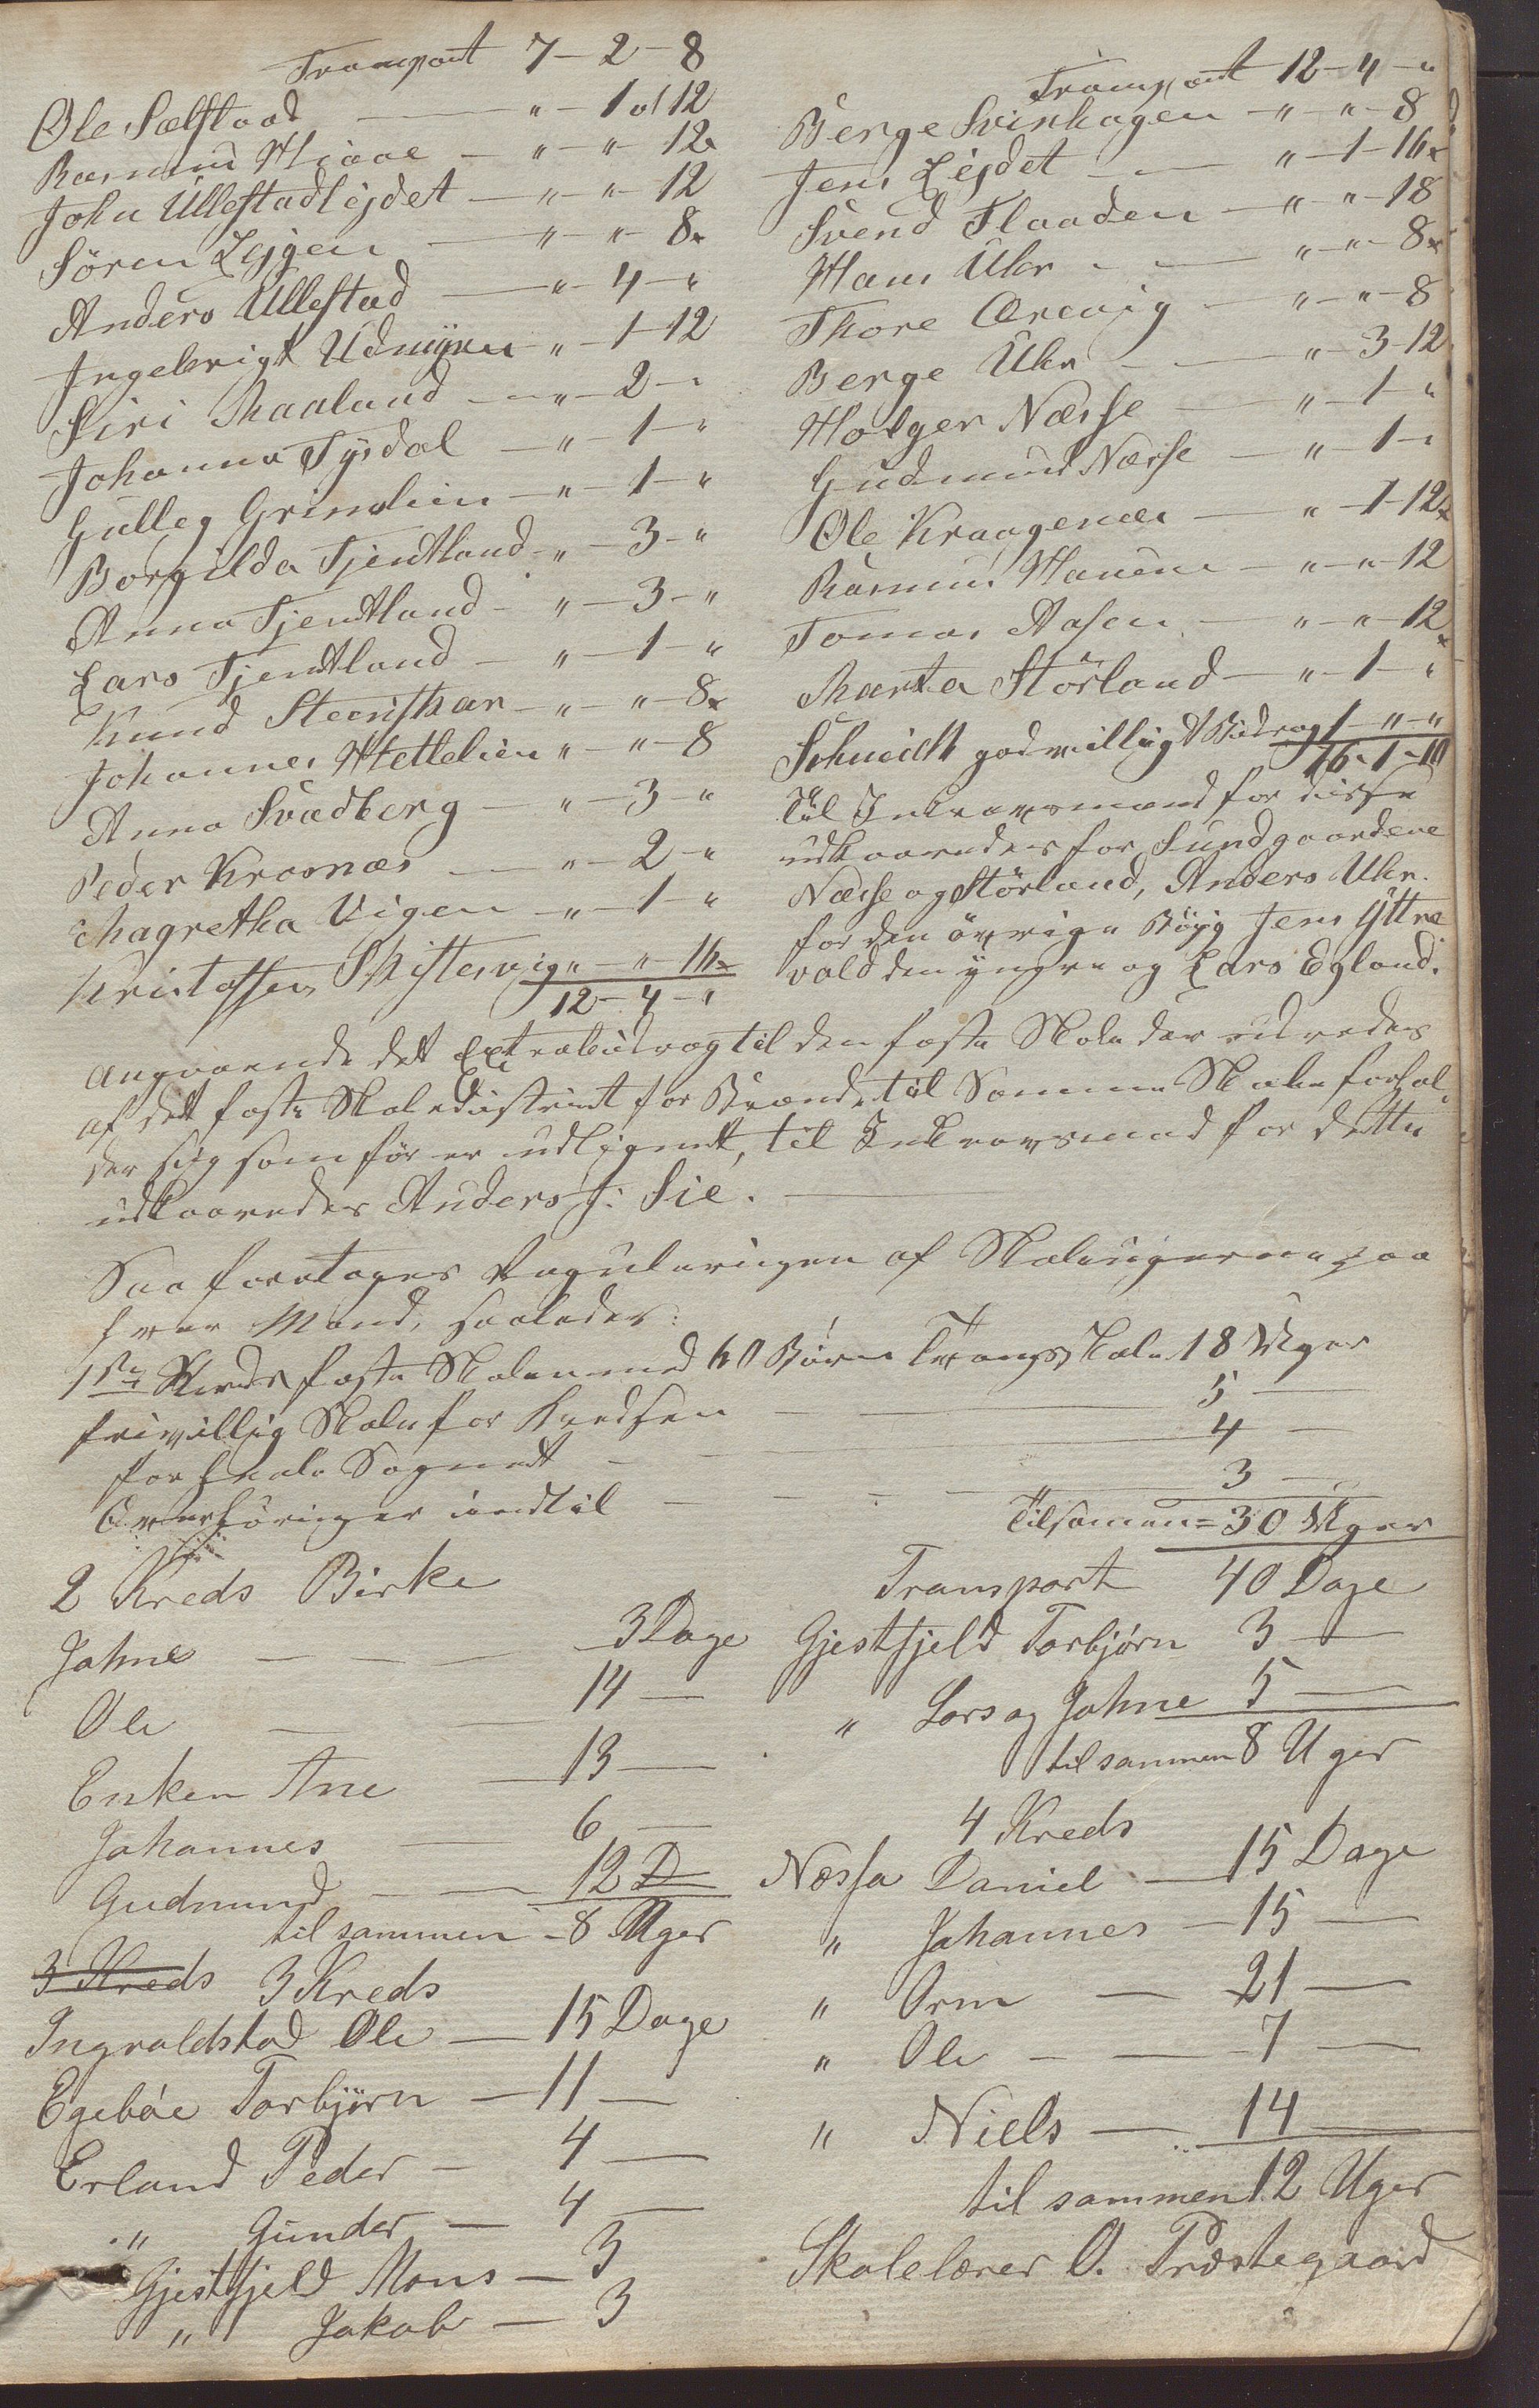 Transport 7 - 2 - 8
Ole Sælstad — " - 1 - 12
Rasmus Hiaae — " - " - 12
John Ullestadlejdet — " - " - 12
Sören Lejgen — " - " - 8
Anders Ullestad — " - 4 - "
Ingebrigt Udmyren - " - 1 - 12
Siri Maaland — " - 2 - "
Johanna Tysdal — " - 1 - "
Gulleg Grimslien - " - 1 - "
Borgilda Tjentland - " - 3 - "
Anna Tjentland - " - 3 - "
Lars Tjentland - " - 1 - "
Knud Steenskar - " - " - 8
Johannes Hettelien " - " - 8
Anna Svadberg — " - 3 "
Peder Krosnæs — " - 2 - "
Magretha Vigen - " - 1 - "
Kristoffer Skiftesvig " - " - 16
12 - 4 - "
Transport 12 - 4 - "
Berge Svinhagen - " - " - 8
Jens Lejdet — " - 1 - 16
Svend Flaaden - " - " - 18
Hans Uhr — " - " - 8
Thore Ørevig — " - " - 8
Berge Uhr — " - 3 - 12
Holger Næsse — " - 1 - "
Gudmund Næsse — " - 1 - "
Ole Kraagenæs — " - 1 - 12
Rasmus Hauene - " - " - 12
Tomas Aasen — " - " - 12
Marta Störland - " - 1 - "
Schmidt godvilligt Bidrag 1 - " - "
16 - 1 - 10
Til Inkravsmænd for disse
udkaaredes for Sundgaardene
Næsse og Störland, Anders Uhr.
for den övrige Bÿg Jens Yttre
vold den yngre og Lars Egland.
angaaende det Extrabidrag til den faste Skole der udredes
af det faste Skoledistrict for Brænde til Samme Skole forhol,
der sig som før er udlignet, til Inkravsmand for dette
udkaaredes Anders J: Sie. —
Saa foretages Reguleringen af Skoleugerne paa
hver Mand, saaledes:
1ste Kreds faste Skolen med 60 Börn Tvangsskole 18 Uger
frivillig Skole for Kredsen — 5 —
for hele Sognet — 4 —
Overhöringer indtil — 3 —
Tilsamen = 30 Uger
2 Kreds Birke
Johne — 3 Dage
Ole — 14 —
Enken Ane — 13 —
Johannes — 6 —
Gudmund — 12 D
til sammen - 8 Uger
3 Kreds 3 Kreds
Ingvaldstad Ole — 15 Dage
Egebøe Torbjørn — 11 —
Erland Peder — 4 —
" Gunder — 4 —
Gjestfjeld Mons — 3
" Jakob — 3
Transport 40 Dage
Gjestfjeld Torbjørn 3 —
" Lars og Johne 5 —
til sammen 8 Uger
4 Kreds
Næssa Daniel — 15 Dage
" Johannes — 15 —
" Orm — 21 —
" Ole — 7 —
" Niels — 14
til sammen 12 Uger
Skolelærer O. Præstegaard